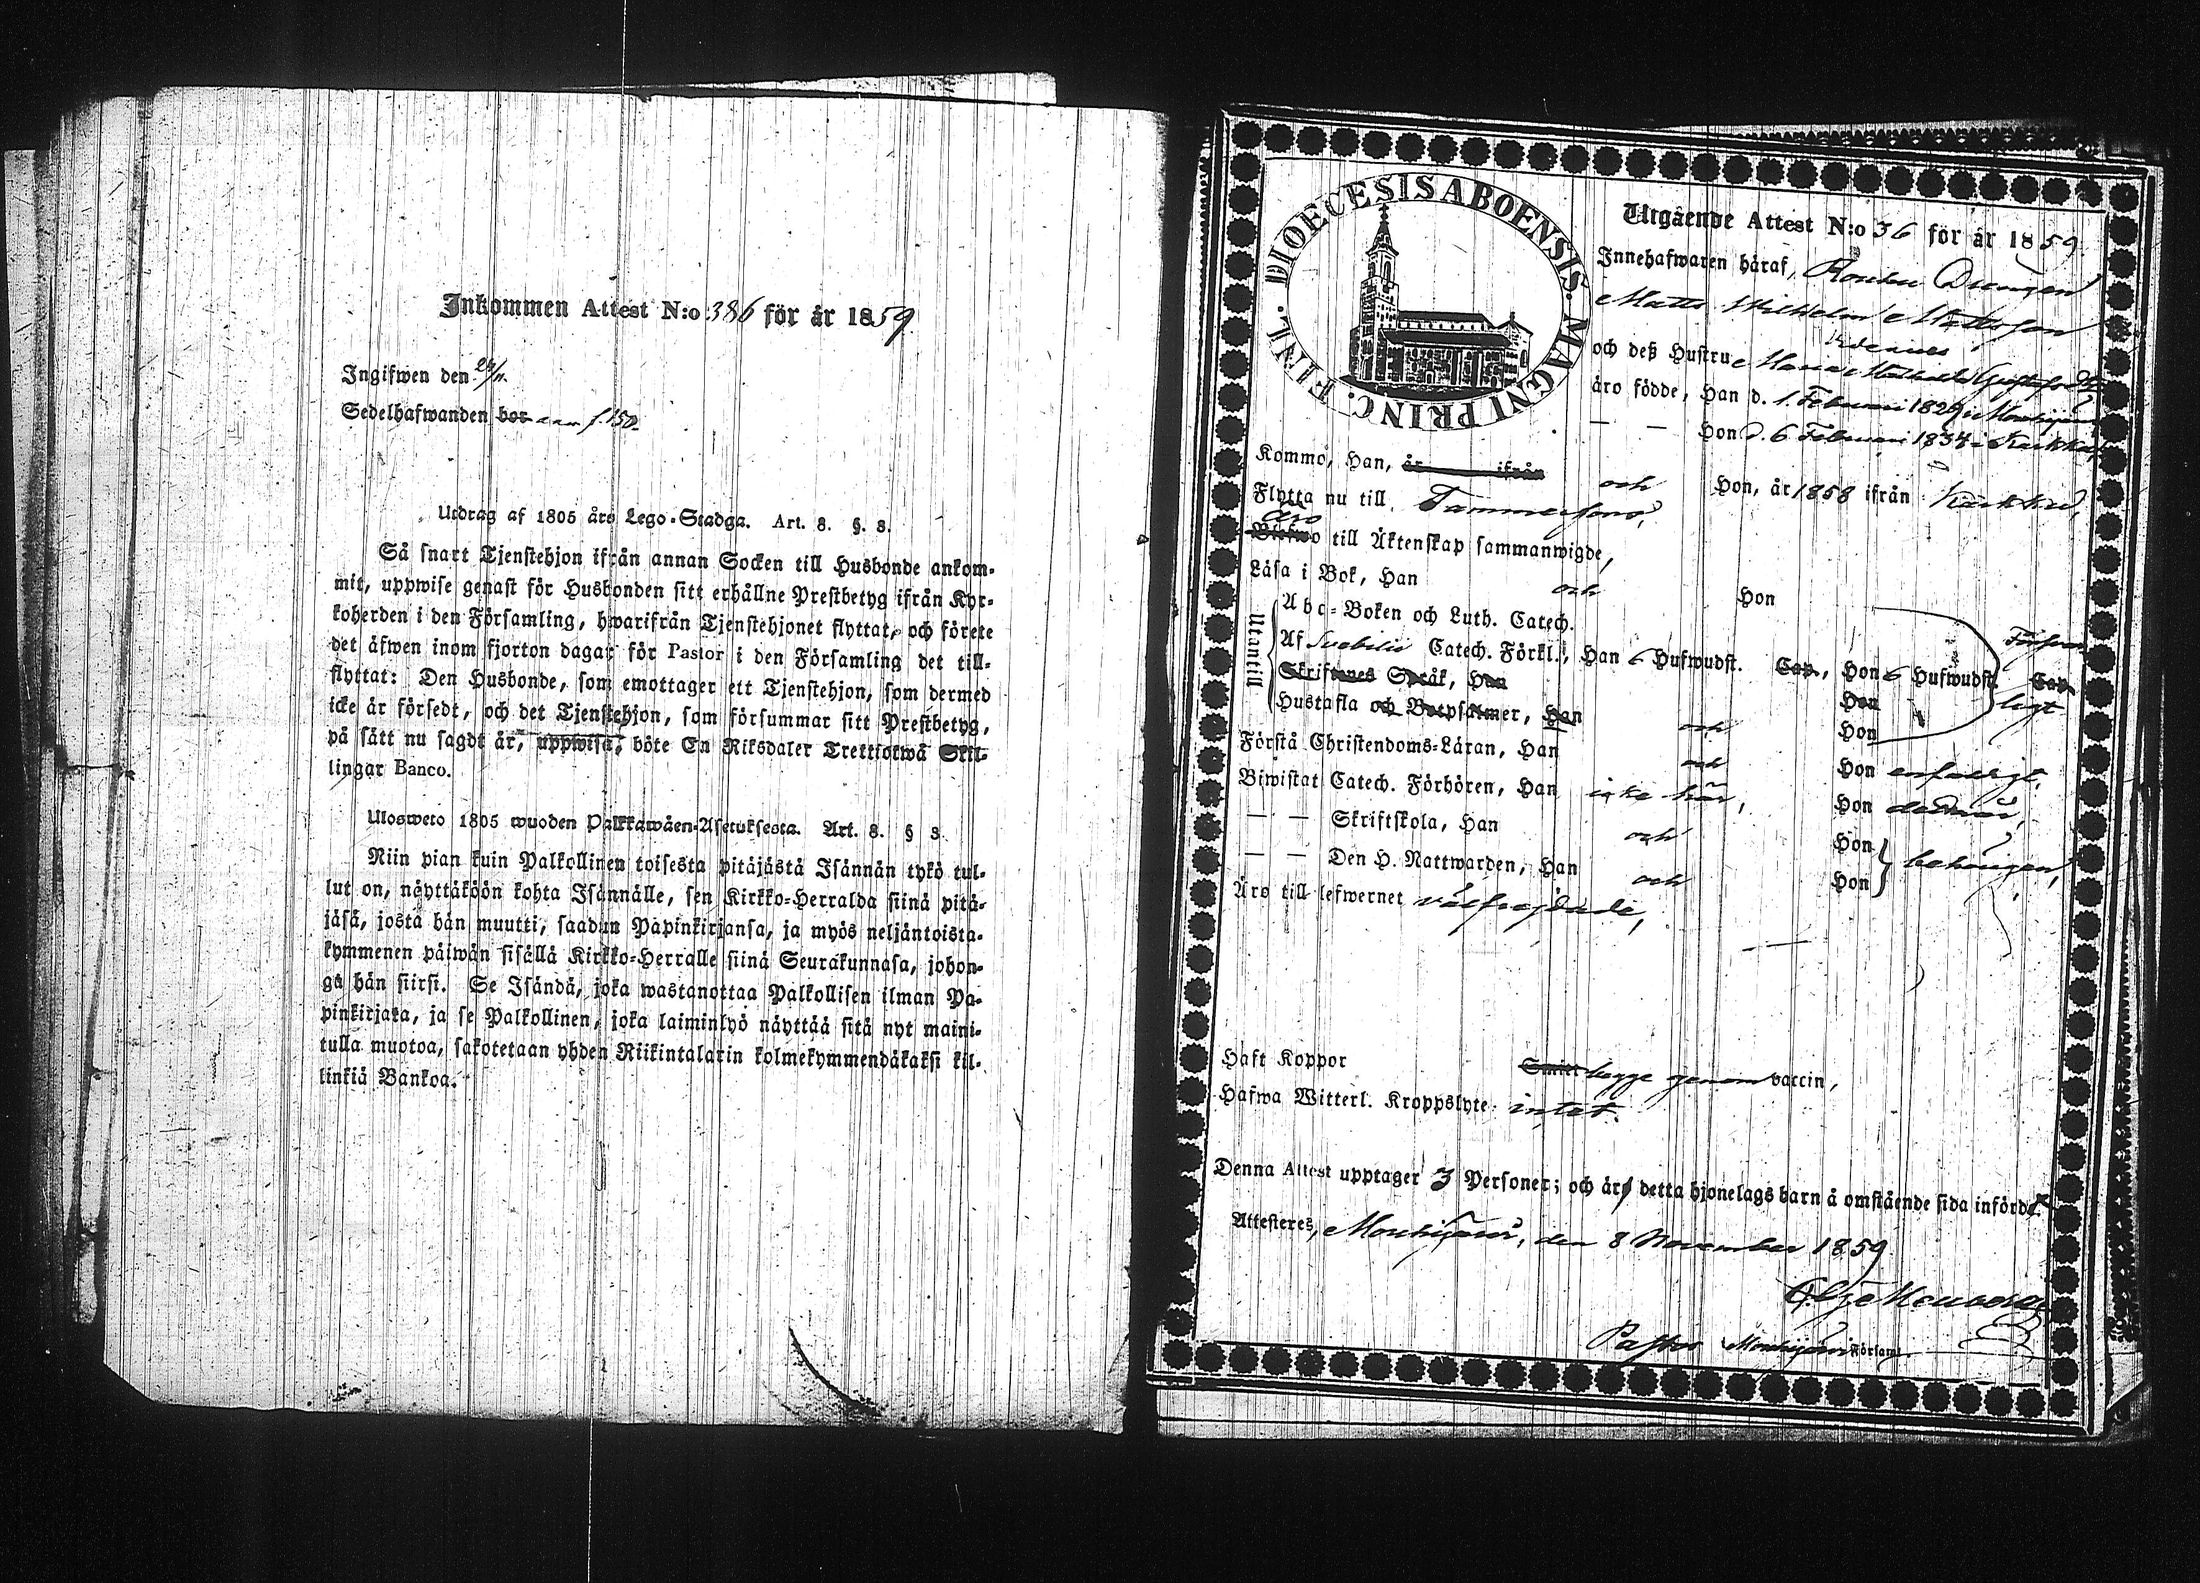 Inkommen Attest N:o 386 för år 1859
Ingifwen den 24/11.
Sedelhafwanden bor f. 150.
Utdrag af 1805 års Lego-Stadga. Art. 8. §. 8.
Så snart Tjenstehjon ifrån annan Socken till Husbonde ankom-
mit, uppwise genast för Husbonden sitt erhållne Prestbetyg ifrån Kyr-
koherden i den Församling, hwarifrån Tjenstehjonet flyttat, och förete
det äfwen inom fjorton dagar för Pastor i den Församling det till-
flyttat: Den Husbonde, som emottager ett Tjenstehjon, som dermed
icke är försedt, och det Tjenstehjon, som försummar sitt Prestbetyg,
på sätt nu sagdt är, uppwisa, böte En Riksdaler Trettiotwå Skil-
lingar Banco.
Ulosweto 1805 wuoden Palkkawäen-Asetuksesta. Art. 8. § 8.
Niin pian kuin Palkollinen toisesta pitäjästä Isännän tykö tul-
lut on, näyttäköön kohta Isännälle, sen Kirkko-Herralda siinä pitä-
jäsä, josta hän muutti, saadun Papinkirjansa, ja myös neljäntoista-
kymmenen päiwän sisällä Kirkko-Herralle siinä Seurakunnasa, johon-
ga hän siirsi. Se Isändä, joka wastanottaa Palkollisen ilman Pa-
pinkirjata, ja se Palkollinen, joka laiminlyö näyttää sitä nyt maini-
tulla muotoa, sakotetaan yhden Riikintalarin kolmekymmendäkaksi kil-
linkiä Bankoa.
DIOECESIS ABOENSIS. MAGNI PRINC. FINL.
Utgående Attest N:o 36 för år 1859.
Innehafwaren häraf, Drengen
Matts Wilhelm Mattsson
och deß Hustru Maria Mathilda Gustafsdr
äro födde, Han d. 1 Februari 1829 i Mouhijärvi
— — Hon d. 6 Februari 1834 i Karkku,
Kommo, Han, år ifrån och Hon, år 1858 ifrån Karkku,
Flytta nu till Tammerfors,
äro
Blefwo till Äktenskap sammanwigde,
Läsa i Bok, Han och Hon
Utantill
Abc-Boken och Luth. Catech.
Af Svebilii Catech. Förkl., Han 6 Hufwudst. Cap., Hon 6 Hufwudst. Cap.
Skriftenes Språk, Han Hon
Hustafla och Botpsalmer, Han och Hon
Förstå Christendoms-Läran, Han och Hon enfaldigt,
Biwistat Catech. Förhören, Han icke här, Hon
— — Skriftskola, Han och Hon
— — Den H. Nattwarden, Han och Hon behörigen,
Äro till lefwernet välfrejdade,
Haft Koppor Smitt begge genom vaccin,
Hafwa Witterl. Kroppslyte intet.
Denna Attest upptager 3 Personer; och äro detta hjonelags barn å omstående sida införd
Attesteres, Mouhijärvi, den 8 November 1859
Pastor Mouhijärvi Församl.